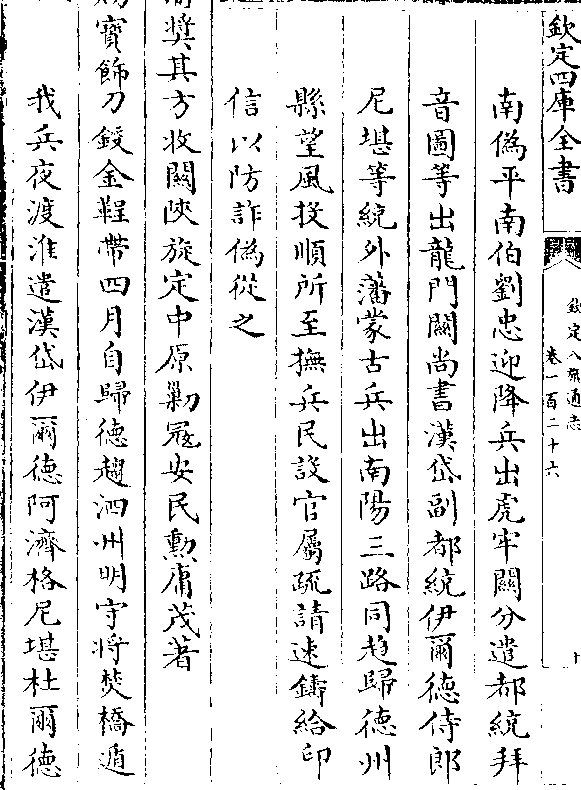 欽定四庫全書
欽定八旗通志
卷一百二十六
十
南偽平南伯劉忠迎降兵出虎牢關分遣都統拜
音圖等出龍門關尚書漢岱副都統伊爾德侍郎
尼堪等統外藩蒙古兵出南陽三路同趨歸德州
縣望風投順所至撫兵民設官屬疏請速鑄給印
信以防詐偽從之
奬其方收關陜旋定中原剿冦安民勲庸茂著
寳飾刀鋄金鞓帶四月自歸德趨泗州明守將焚橋遁
我兵夜渡淮遣漢岱伊爾德阿濟格尼堪杜爾德